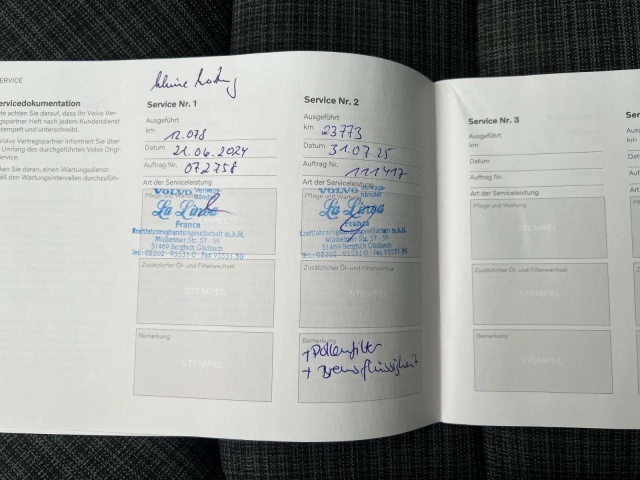 ERVICE
ervicedokumentation
te achten Sie darauf, dass Ihr Volvo Ver-
gspartner Heft nach jedem Kundendienst
stempelt und unterschreibt.
Volvo Vertragspartner informiert Sie über
Umfang des durchgeführten Volvo Origi-
ervice.
ken Sie daran, einen Wartungsdienst
äß den Wartungsintervallen durchzufüh-
kleine Wartung
Service Nr. 1
Ausgeführt
km 12.078
Datum 21.06.2024
Auftrag Nr. 072758
Art der Serviceleistung
Pflege und Wartung
VOLVO Vertrags-
händler
La Linea
France
Kraftfahrzeughandelsgesellschaft m.b.H.
Mülheimer Str. 57 - 59
51469 Bergisch Gladbach
Tel.: 02202 - 95531-0 · Fax 95531-30
Zusätzlicher Öl- und Filterwechsel
STEMPEL
Bemerkung
STEMPEL
Service Nr. 2
Ausgeführt
km 23773
Datum 31.07.25
Auftrag Nr. 111417
Art der Serviceleistung
Pflege und Wartung
VOLVO Vertrags-
händler
La Linea
France
Kraftfahrzeughandelsgesellschaft m.b.H.
Mülheimer Str. 57 - 59
51469 Bergisch Gladbach
Tel.: 02202 - 95531-0 · Fax 95531-30
Zusätzlicher Öl- und Filterwechsel
STEMPEL
Bemerkung
+ Pollenfilter
+ Bremsflüssigkeit
Service Nr. 3
Ausgeführt
km
Datum
Auftrag Nr.
Art der Serviceleistung
Pflege und Wartung
STEMPEL
Zusätzlicher Öl- und Filterwechsel
STEMPEL
Bemerkung
STEMPEL
Se
Au
km
Da
Au
Art